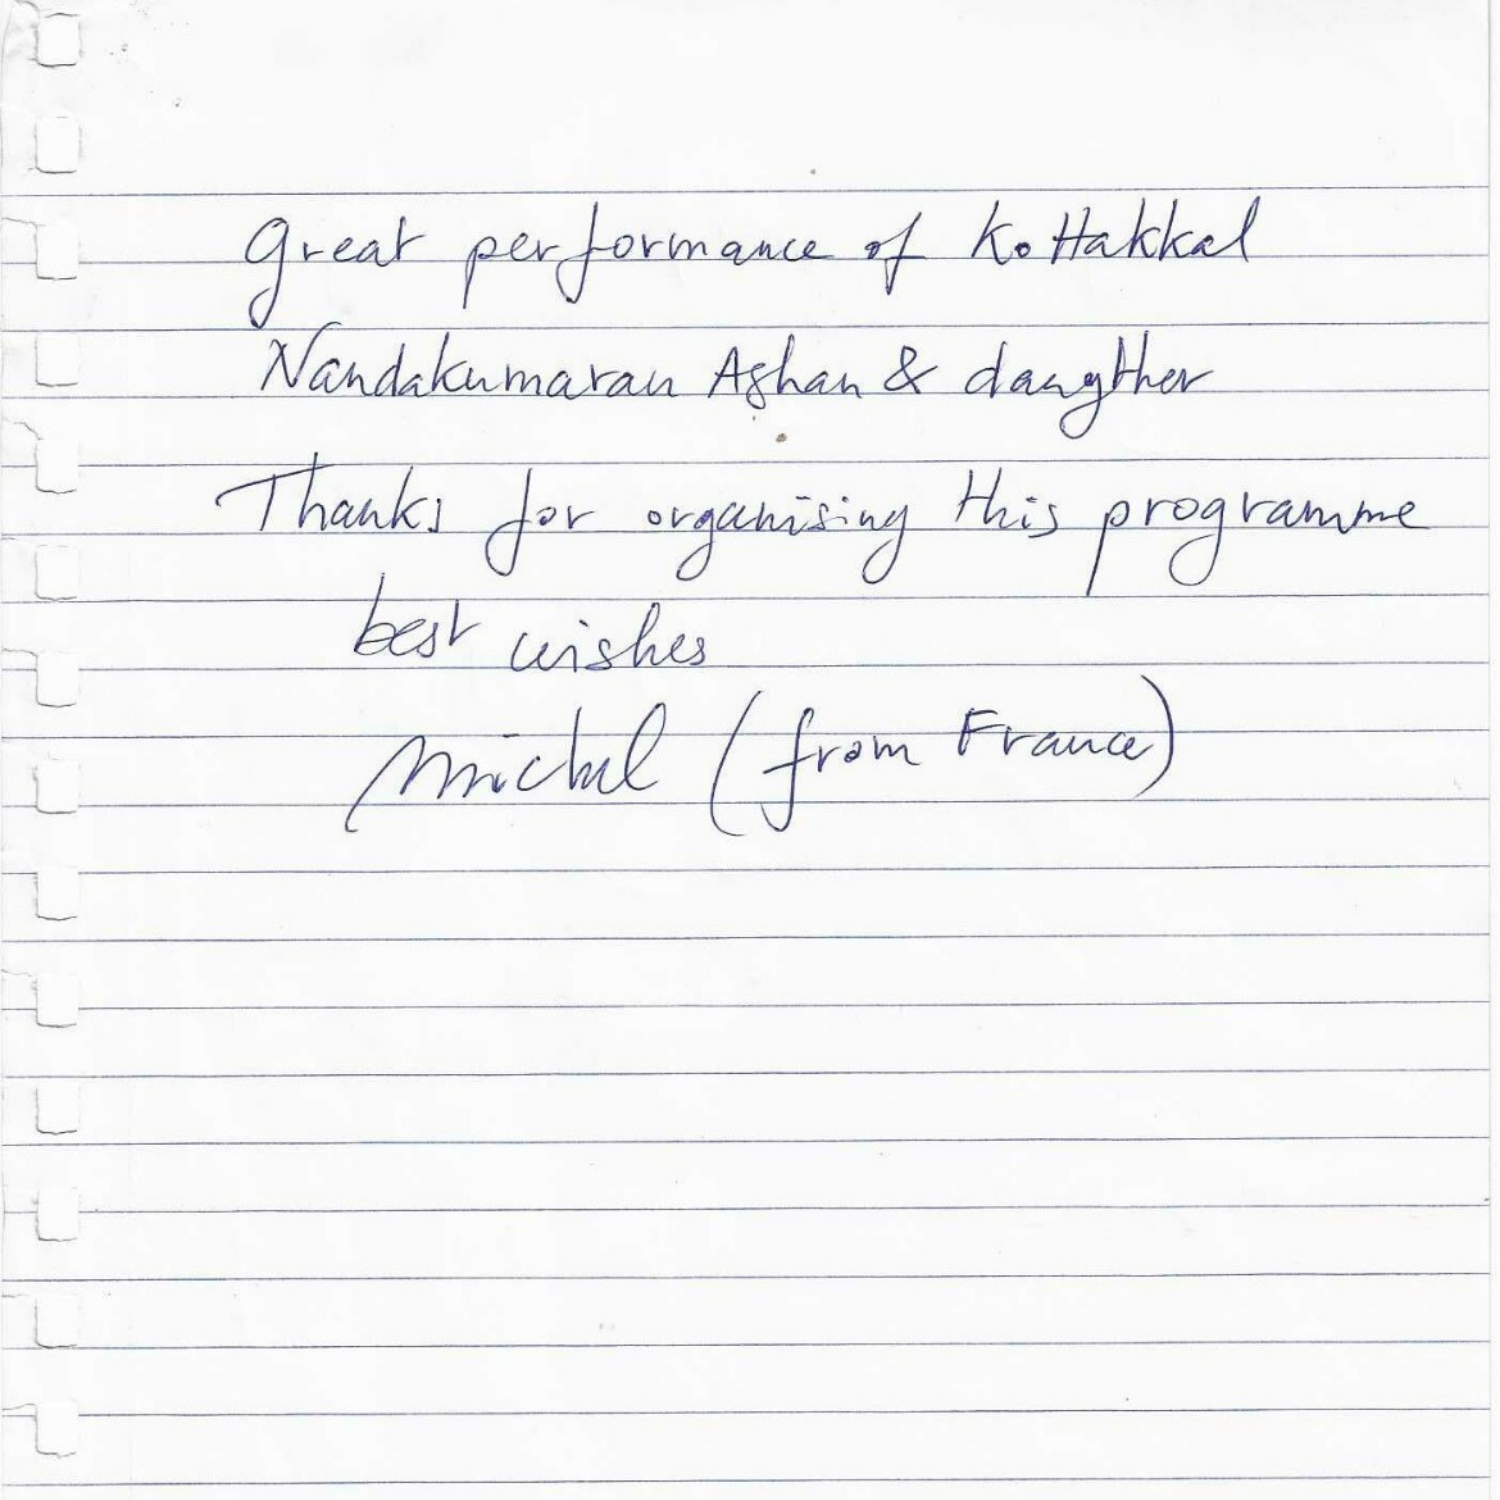 Great performance of Kottakkal
Nandakumaran Ashan & daugther
Thanks for organising this programme
best wishes
Michel (from France)